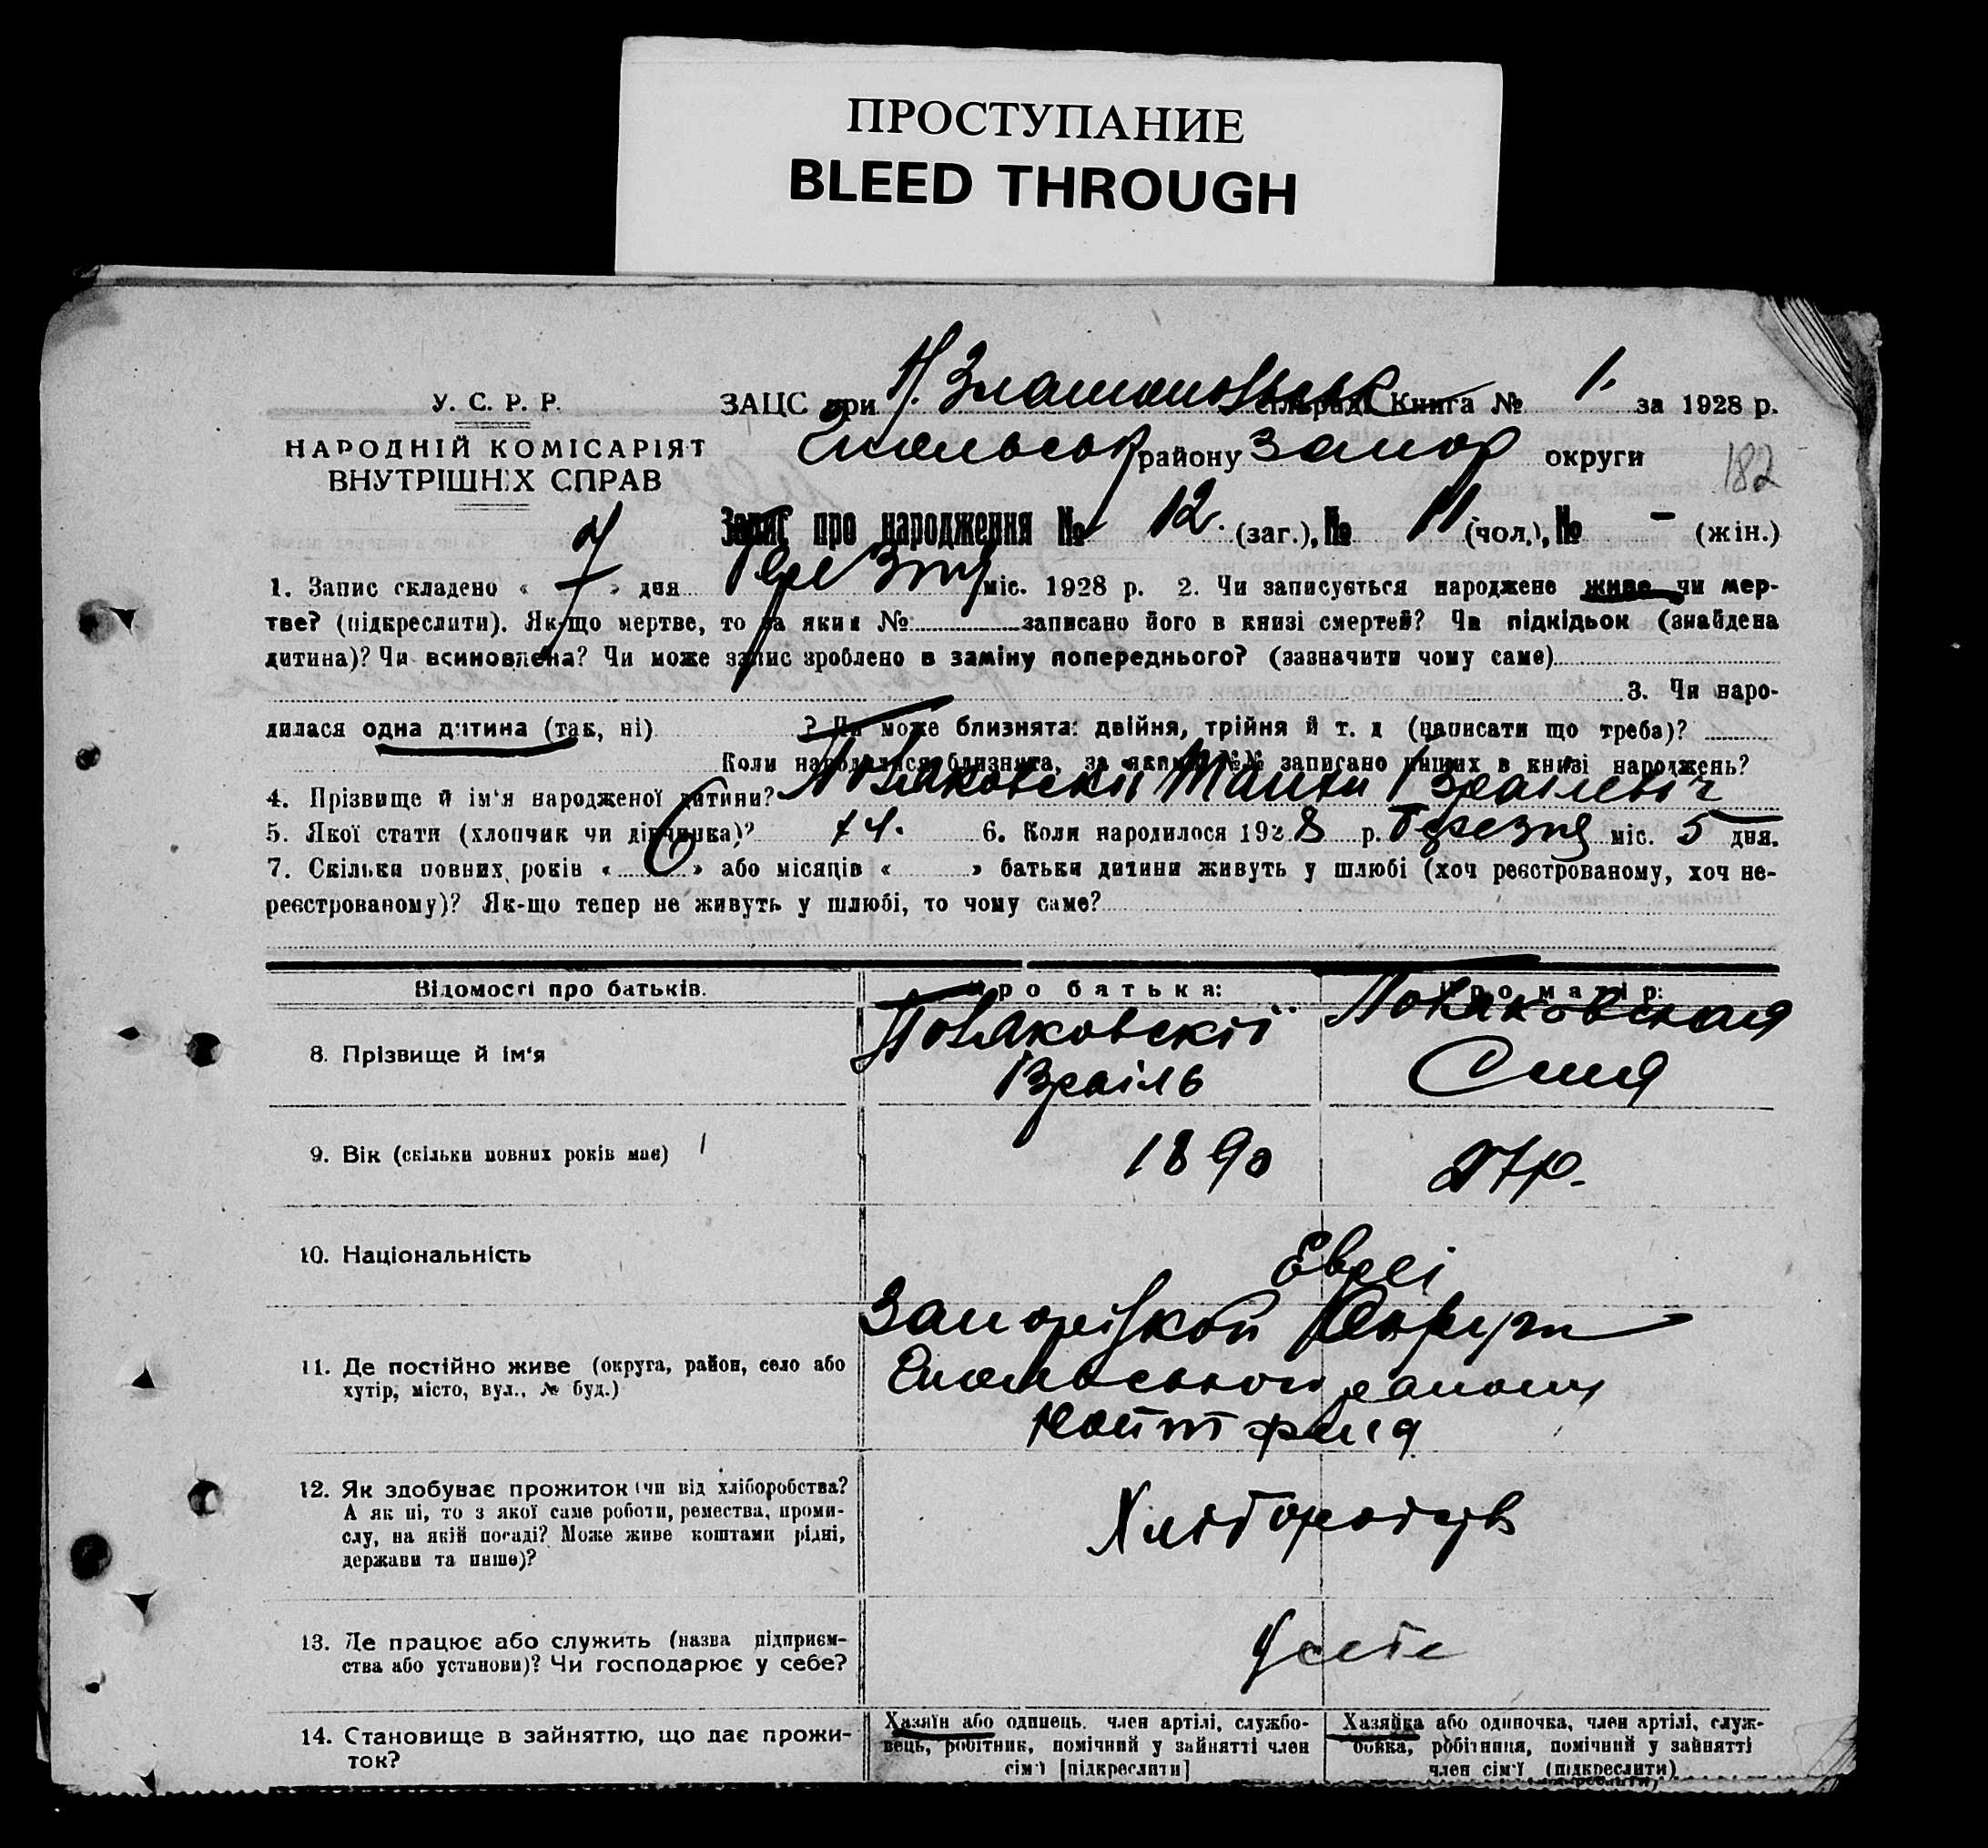 ПРОСТУПАНИЕ
BLEED THROUGH
У. С. Р. Р.
НАРОДНІЙ КОМІСАРІЯТ
ВНУТРІШНІХ СПРАВ
ЗАЦС при Н. Златопольськ сільраді Книга № 1. за 1928 р.
району Запор округи
182
Запис про народження № 12. (заг.), № 11 (чол.), № – (жін.)
1. Запис складено « 7 » дня Березня міс. 1928 р. 2. Чи записується народжене живе чи мер-
тве? (підкреслити). Як-що мертве, то за яким № записано його в книзі смертей? Чи підкідьок (знайдена
дитина)? Чи всиновлена? Чи може запис зроблено в заміну попереднього? (зазначити чому саме)
3. Чи наро-
дилася одна дитина (так, ні) ? Чи може близнята: двійня, трійня й т. д (написати що треба)?
Коли народилися близнята, за якими №№ записано инших в книзі народжень?
4. Прізвище й ім'я народженої дитини? Ізраілевіч
5. Якої стати (хлопчик чи дівчинка)? 6. Коли народилося 1928 р. Березня міс. 5 дня.
7. Скільки повних років « 6 » або місяців « » батьки дитини живуть у шлюбі (хоч реєстрованому, хоч не-
реєстрованому)? Як-що тепер не живуть у шлюбі, то чому саме?
Відомості про батьків.
Про батька:
Про матір:
8. Прізвище й ім'я
Ізраіль
9. Вік (скільки повних років має)
1890
27 р.
10. Національність
Євреі
11. Де постійно живе (округа, район, село або
хутір, місто, вул., № буд.)
Запоріжкой Округи
району
12. Як здобуває прожиток (чи від хліборобства?
А як ні, то з якої саме роботи, ремества, проми-
слу, на якій посаді? Може живе коштами рідні,
держави та инше)?
13. Де працює або служить (назва підприєм-
ства або установи)? Чи господарює у себе?
У себе
14. Становище в зайняттю, що дає прожи-
ток?
Хазяїн або одинець, член артілі, службо-
вець, робітник, помічний у зайнятті член
сім'ї [підкреслити]
Хазяйка або одиночка, член артілі, служ-
бовка, робітниця, помічний у зайнятті
член сім'ї (підкреслити)